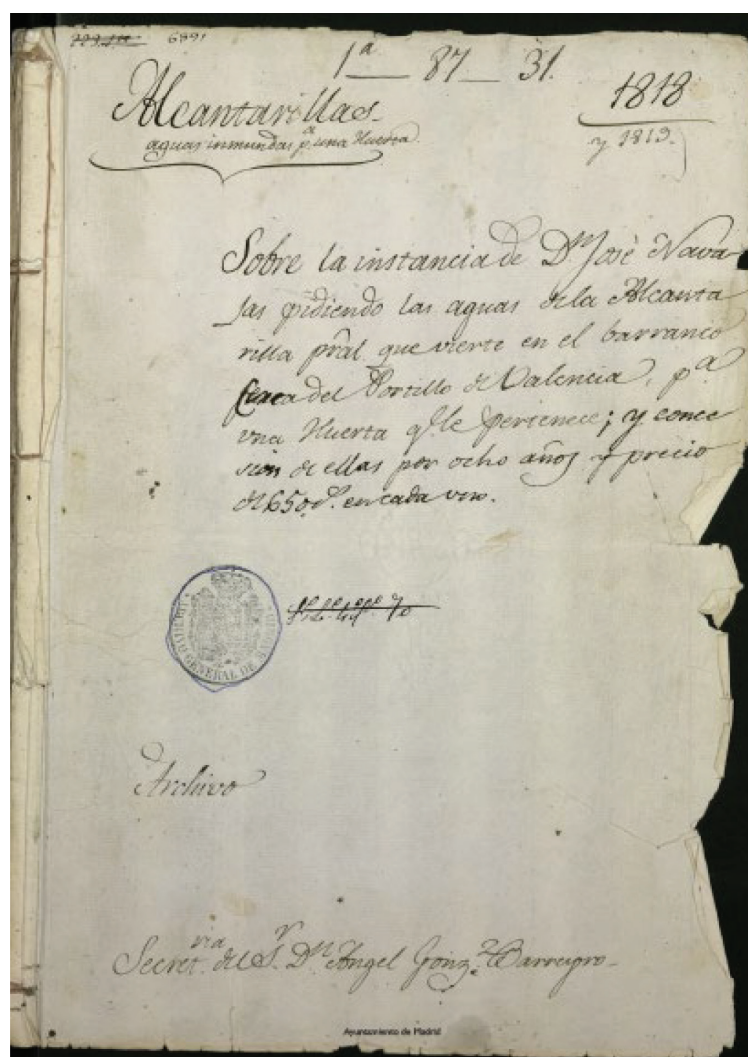 6891
1ª 87 31.
Alcantarillas
1818
aguas inmundas pª una Huerta.
y 1819.
Sobre la instancia de Dn José Nava
jas pidiendo las aguas de la Alcanta
rilla pral que vierte en el barranco
cerca del Portillo de Valencia, pª
una Huerta qe le pertenece; y conce
sion de ellas por ocho años y precio
de 650 rs. en cada uno.
GENERAL DE
Archivo
Secretria del Sr Dn Angel Gonzz Barreyro
Ayuntamiento de Madrid